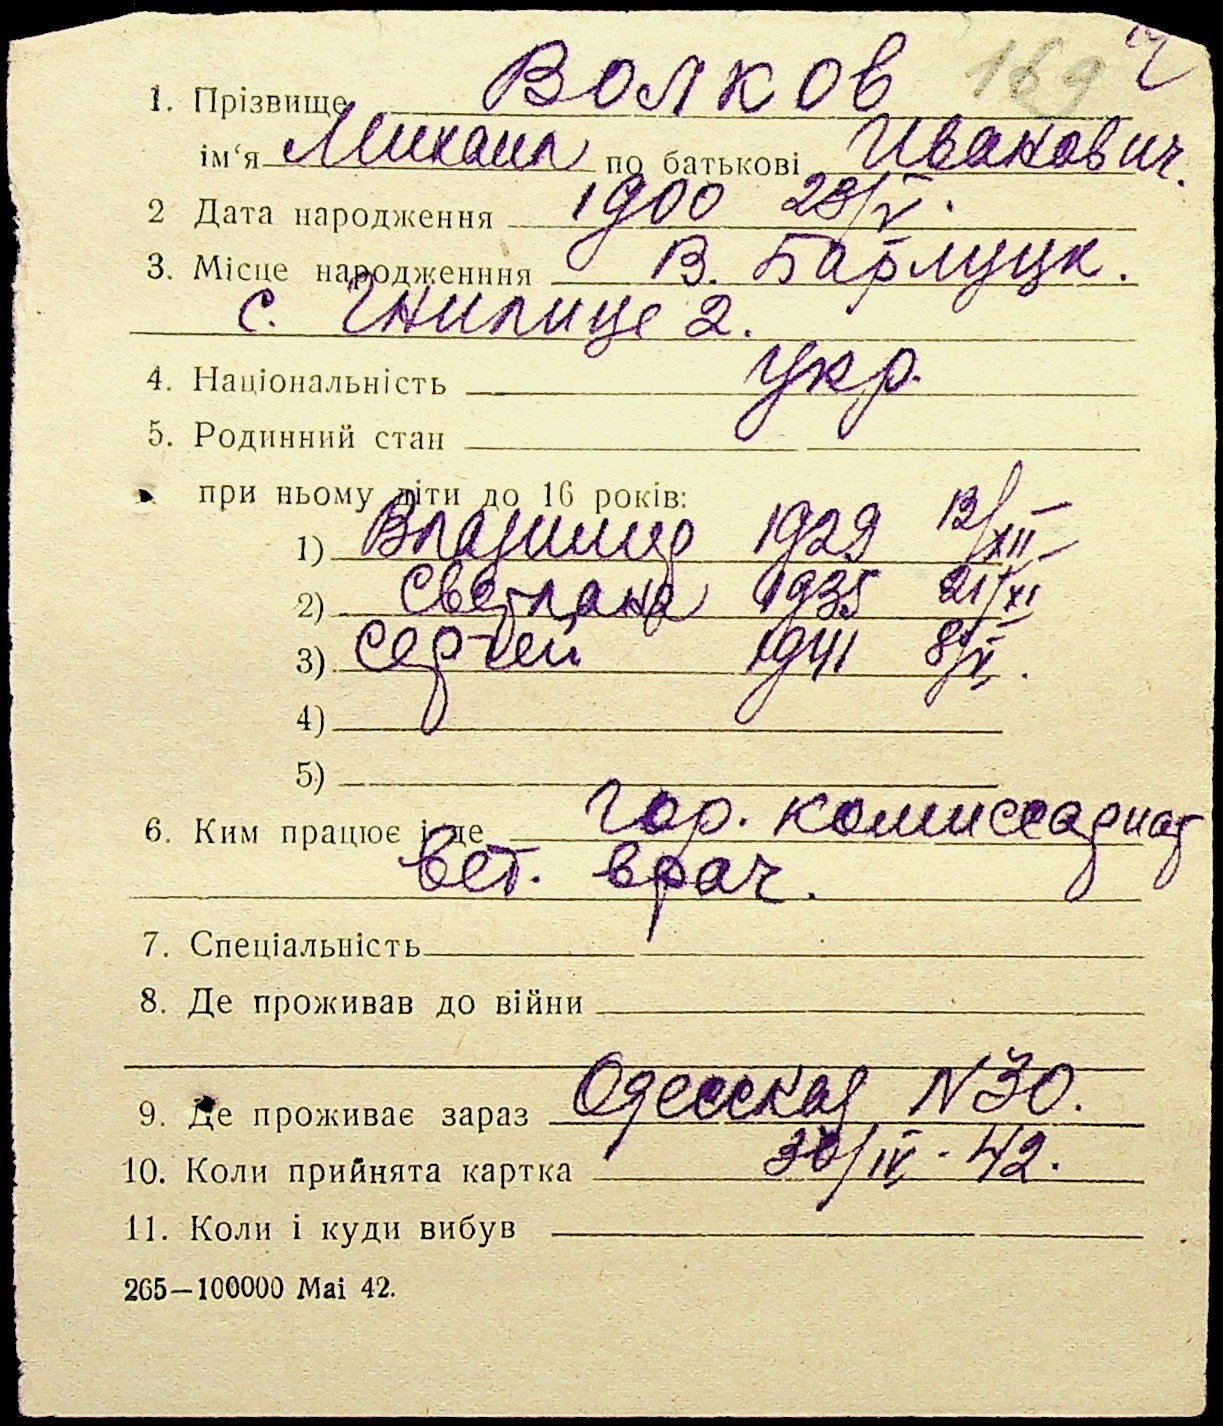 169
1. Прізвище Волков
ім'я Михаил по батькові Иванович.
2 Дата народження 1900 23/V.
3. Місце народженння В. Барлуцк.
с. Гнилице 2.
4. Національність укр.
5. Родинний стан
при ньому діти до 16 років:
1) Владимир 1929 12/XII
2) Светлана 1935 21/XI
3) Сергей 1941 8/V.
4)
5)
6. Ким працює і де гор. комиссариат
вет. врач.
7. Спеціальність
8. Де проживав до війни
9. Де проживає зараз Одесская N 30.
10. Коли прийнята картка 30/IV. 42.
11. Коли і куди вибув
265—100000 Mai 42.